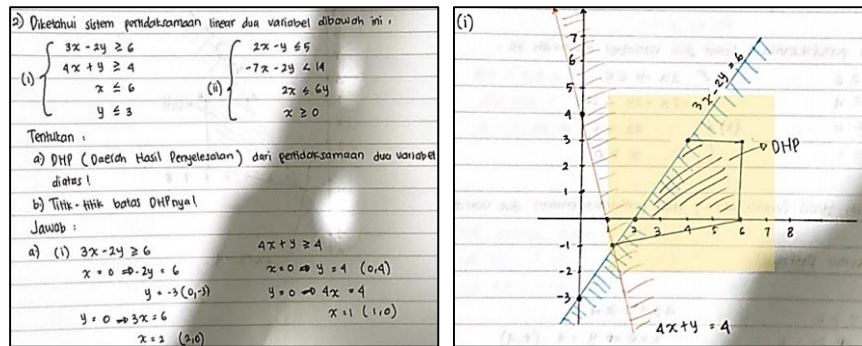 2) Diketahui sistem pertidaksamaan linear dua variabel dibawah ini.
(i) 3x - 2y ≥ 6
4x + y ≥ 4
x ≤ 6
y ≤ 3
(ii) 2x - y ≤ 5
-7x - 2y ≤ 14
2x ≤ 6y
x ≥ 0
Tentukan :
a) DHP (Daerah Hasil Penyelesaian) dari pertidaksamaan dua variabel
diatas!
b) Titik-titik batas DHPnya!
Jawab :
a) (i) 3x - 2y ≥ 6
x = 0 ⇒ -2y = 6
y = -3 (0,-3)
y = 0 ⇒ 3x = 6
x = 2 (2,0)
4x + y ≥ 4
x = 0 ⇒ y = 4 (0,4)
y = 0 ⇒ 4x = 4
x = 1 (1,0)
(i)
7
6
5
4
3
2
1
-1
-2
-3
2 3 4 5 6 7 8
3x - 2y = 6
DHP
4x + y = 4